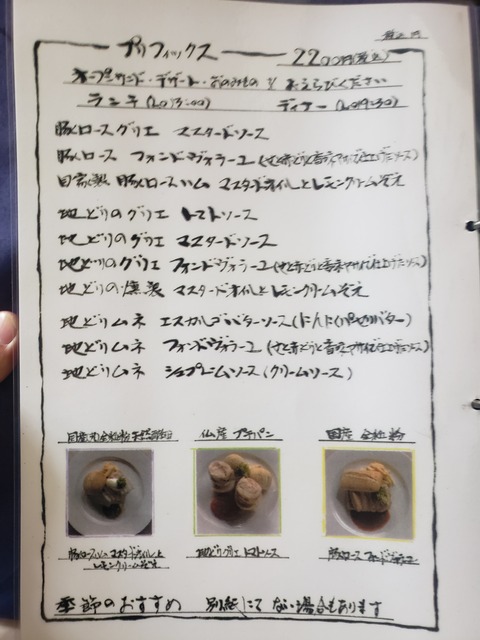 税込 円
プリフィックス 2200円(税込)
オープンサンド・デザート・おのみもの を おえらびください
ランチ(LO15:00) ディナー(LO19:30)
豚ロースグリエ マスタードソース
豚ロース フォンドヴォラーユ
自家製 豚ロースハム マスタードオイルとレモンクリーム添え
地どりのグリエ トマトソース
地どりのグリエ マスタードソース
地どりのグリエ フォンドヴォラーユ
地どりの燻製 マスタードオイルとレモンクリーム添え
地どりムネ エスカルゴバターソース(にんにくパセリバター)
地どりムネ フォンドヴォラーユ
地どりムネ シュプレームソース(クリームソース)
仏産 プチパン
国産 全粒粉
豚ロースハム マスタードオイルと
レモンクリーム添え
地どりグリエ トマトソース
豚ロース フォンドヴォラーユ
季節のおすすめ 別紙にて ない場合もあります